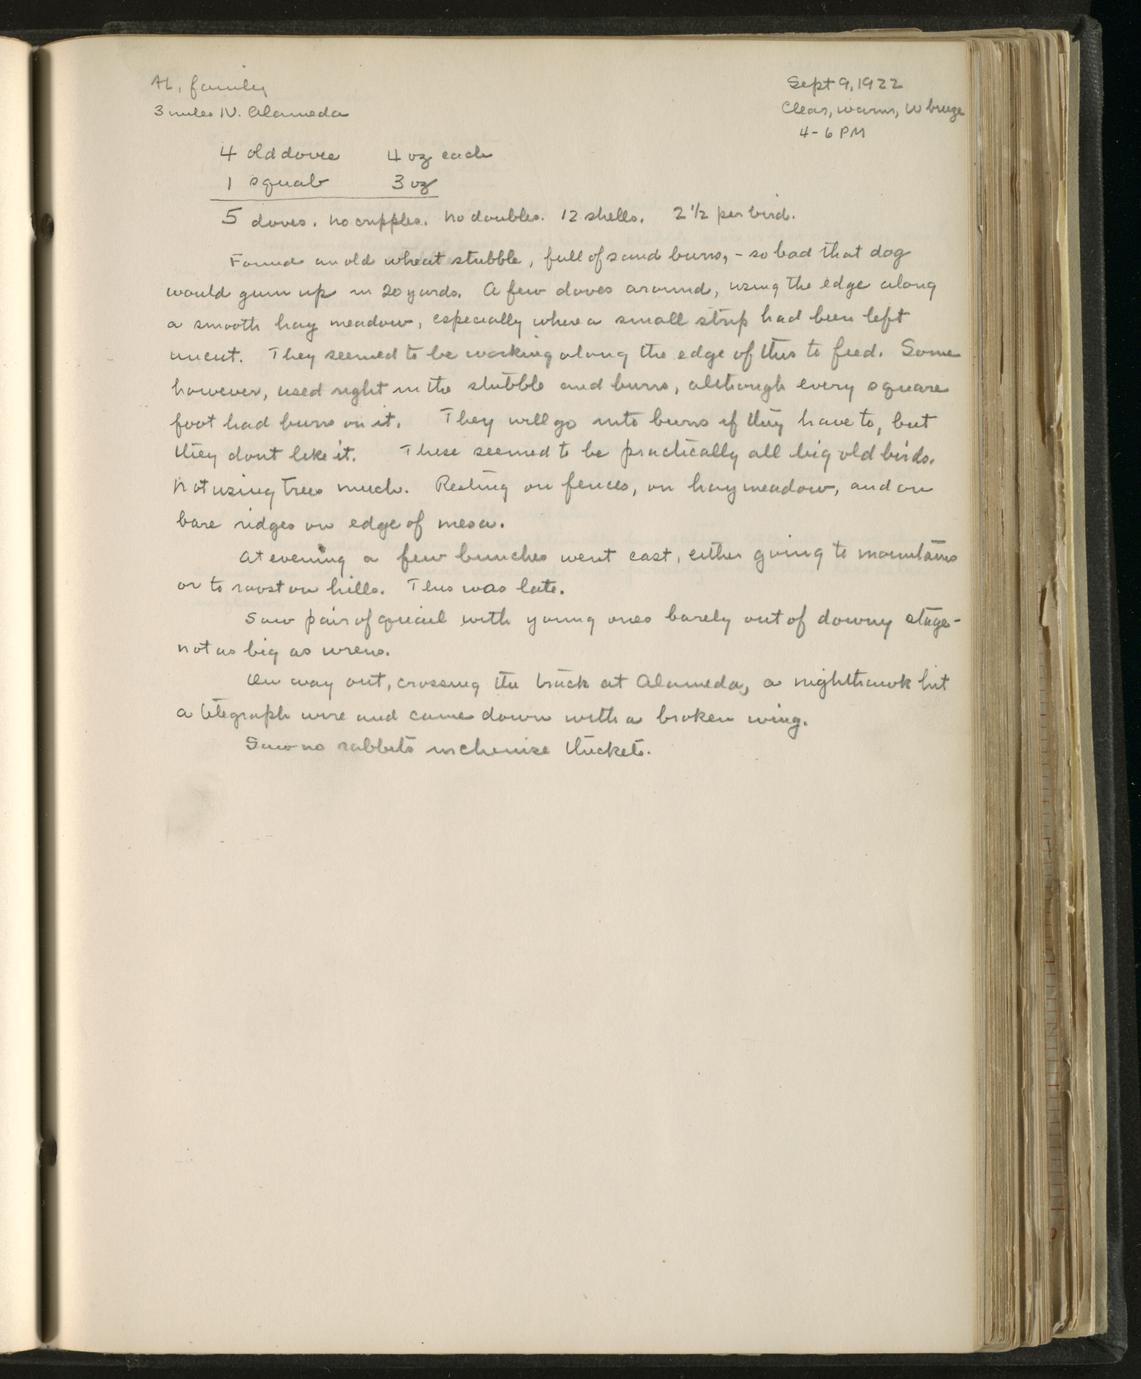 AL, family
3 miles N. Alameda
Sept 9, 1922
Clear, warm, W breeze
4-6 PM
4 old doves 4 oz each
1 squab 3 oz
5 doves. no cripples. no doubles. 12 shells. 2 1/2 per bird.
Found an old wheat stubble, full of sand burrs, - so bad that dog
would gum up in 20 yards. A few doves around, using the edge along
a smooth hay meadow, especially where a small strip had been left
uncut. They seemed to be working along the edge of this to feed. Some
however, used right in the stubble and burrs, although every square
foot had burrs on it. They will go into burrs if they have to, but
they dont like it. These seemed to be practically all big old birds.
Not using trees much. Resting on fences, on hay meadow, and on
bare ridges on edge of mesa.
At evening a few bunches went east, either going to mountains
or to roost on hills. This was late.
Saw pair of quail with young ones barely out of downy stage-
not as big as wrens.
On way out, crossing the track at Alameda, a nighthawk hit
a telegraph wire and came down with a broken wing.
Saw no rabbits in chemise thickets.